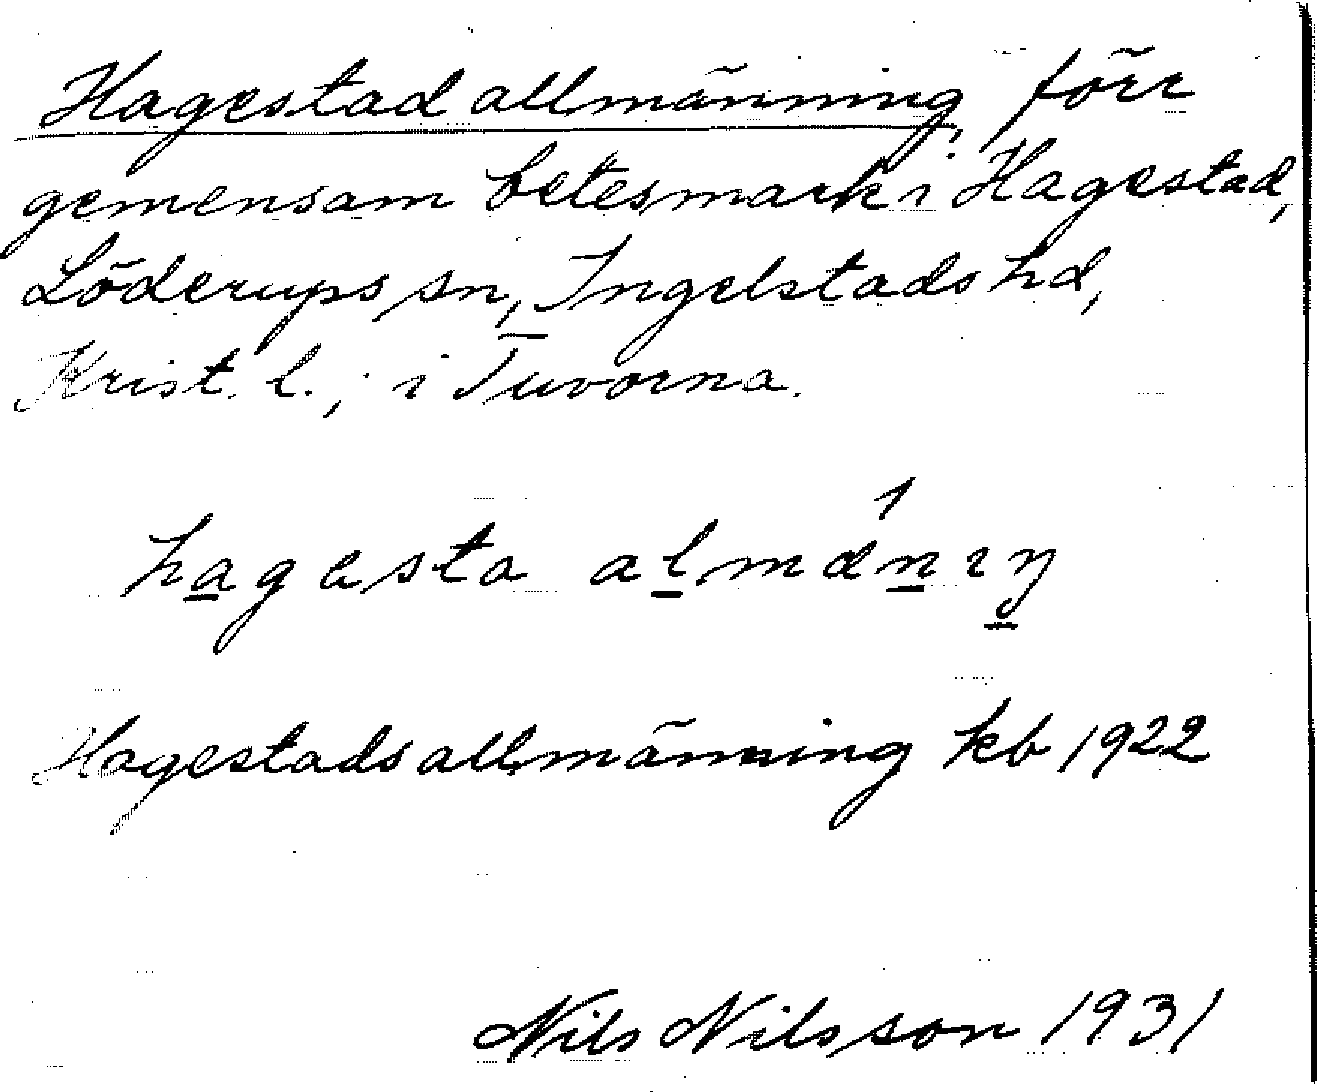 Hagestad allmänning, förr
gemensam betesmark i Hagestad,
Löderups sn, Ingelstads hd,
Krist. l.; i Tuvorna.
hagesta almäniŋ
Hagestads allmänning kb 1922
Nils Nilsson 1931